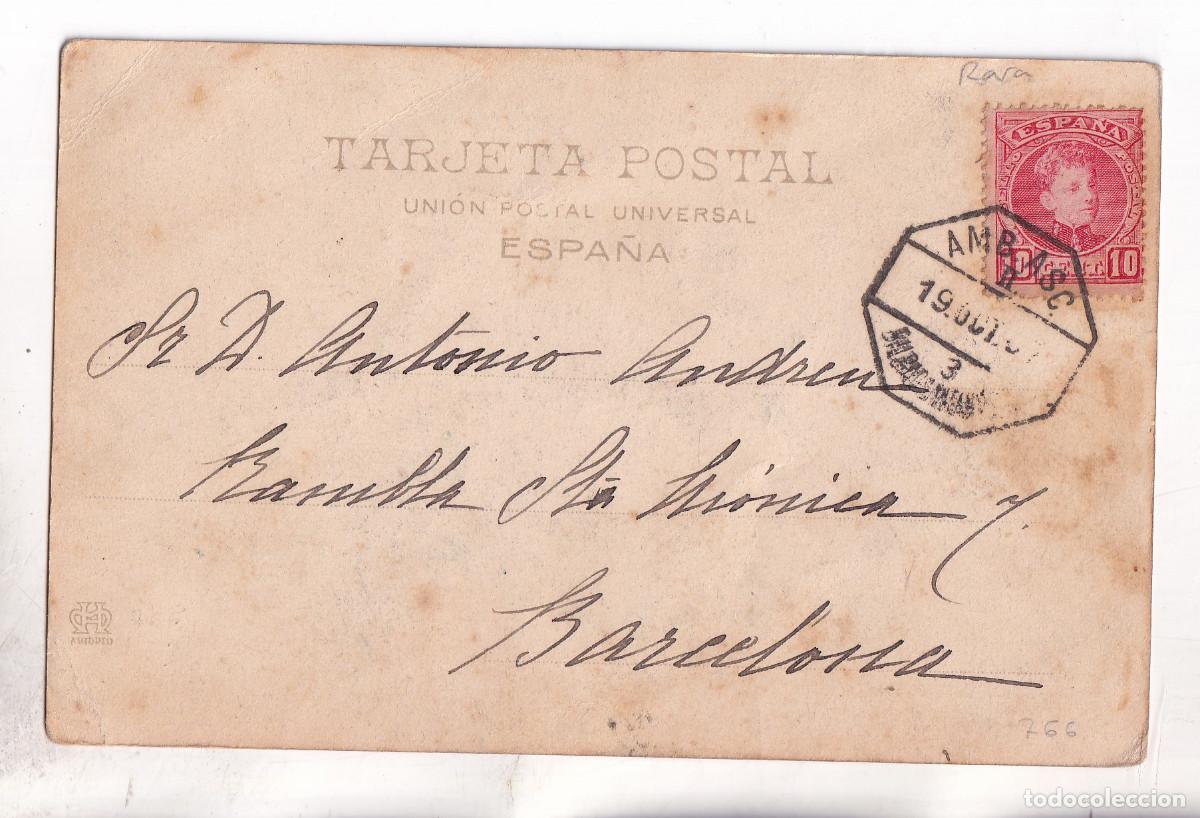 Rara
TARJETA POSTAL
UNIÓN POSTAL UNIVERSAL
ESPAÑA
ESPAÑA
10 CENT. 10
AMB. ASC.
19.OCT.0
3
Sr D. Antonio Andreu
Rambla Sta Mónica 7.
Barcelona
MADRID
766
todocoleccion